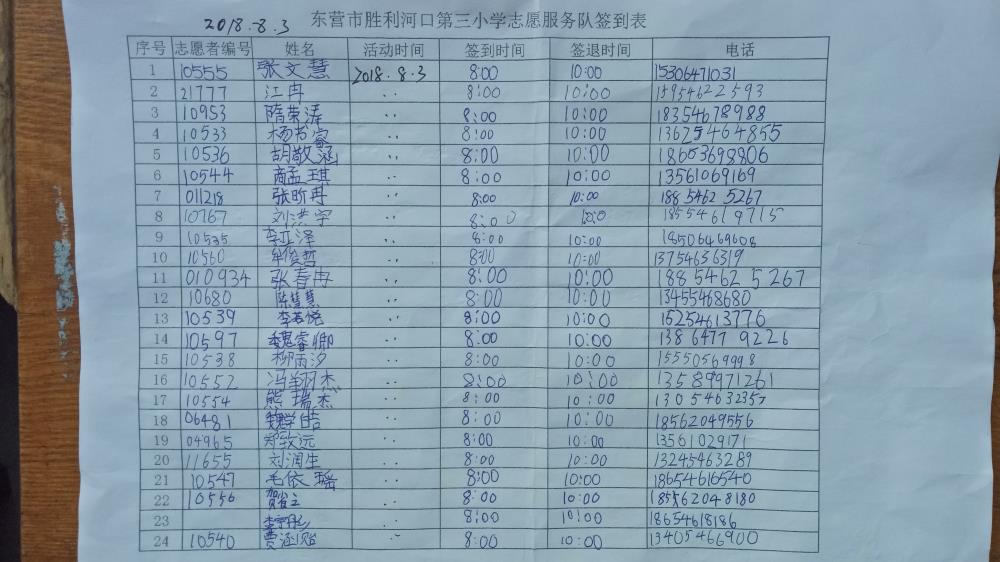 东营市胜利河口第三小学志愿服务队签到表
2018.8.3
序号 志愿者编号 姓名 活动时间 签到时间 签退时间 电话
1 10555 张文慧 2018.8.3 8:00 10:00 15306471031
2 21777 江冉 .. 8:00 10:00 15954622593
3 10953 隋荣涛 .. 8:00 10:00 18354678988
4 10533 杨书睿 .. 8:00 10:00 13625464855
5 10536 胡敬涵 .. 8:00 10:00 18653698806
6 10544 商孟琪 .. 8:00 10:00 13561069169
7 011218 张昕冉 .. 8:00 10:00 188 5462 5267
8 10767 刘洪宇 .. 8:00 10:0 18554619715
9 10535 李亚泽 .. 8:00 10:00 18506469608
10 10560 牟俊哲 .. 8:00 10:00 13754656319
11 010934 张春冉 .. 8:00 10:00 188 5462 5267
12 10680 陈慧慧 .. 8:00 10:00 13455468680
13 10539 李若悦 .. 8:00 10:00 15254613776
14 10597 魏睿卿 .. 8:00 10:00 138 6477 9226
15 10538 柳雨汐 .. 8:00 10:00 15550569998
16 10552 冯翔杰 .. 8:00 10:00 13589971261
17 10554 熊瑞杰 .. 8:00 10:00 130 54632357
18 06481 魏学皓 .. 8:00 10:00 18562049556
19 04965 郑致远 .. 8:00 10:00 13561029171
20 11655 刘润生 .. 8:00 10:00 13245463289
21 10547 毛依瑶 .. 8:00 10:00 18654616540
22 10556 .. 8:00 10:00 18562048180
23 李宇彤 .. 8:00 10:00 18654618186
24 10540 费涵贻 .. 8:00 10:00 13405466900